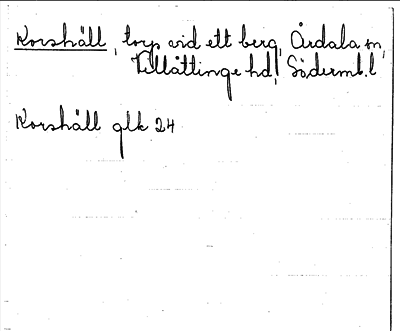 Korshäll, torp vid ett berg, Årdala sn,
Villåttinge hd, Söderml. l
Korshäll glk 24